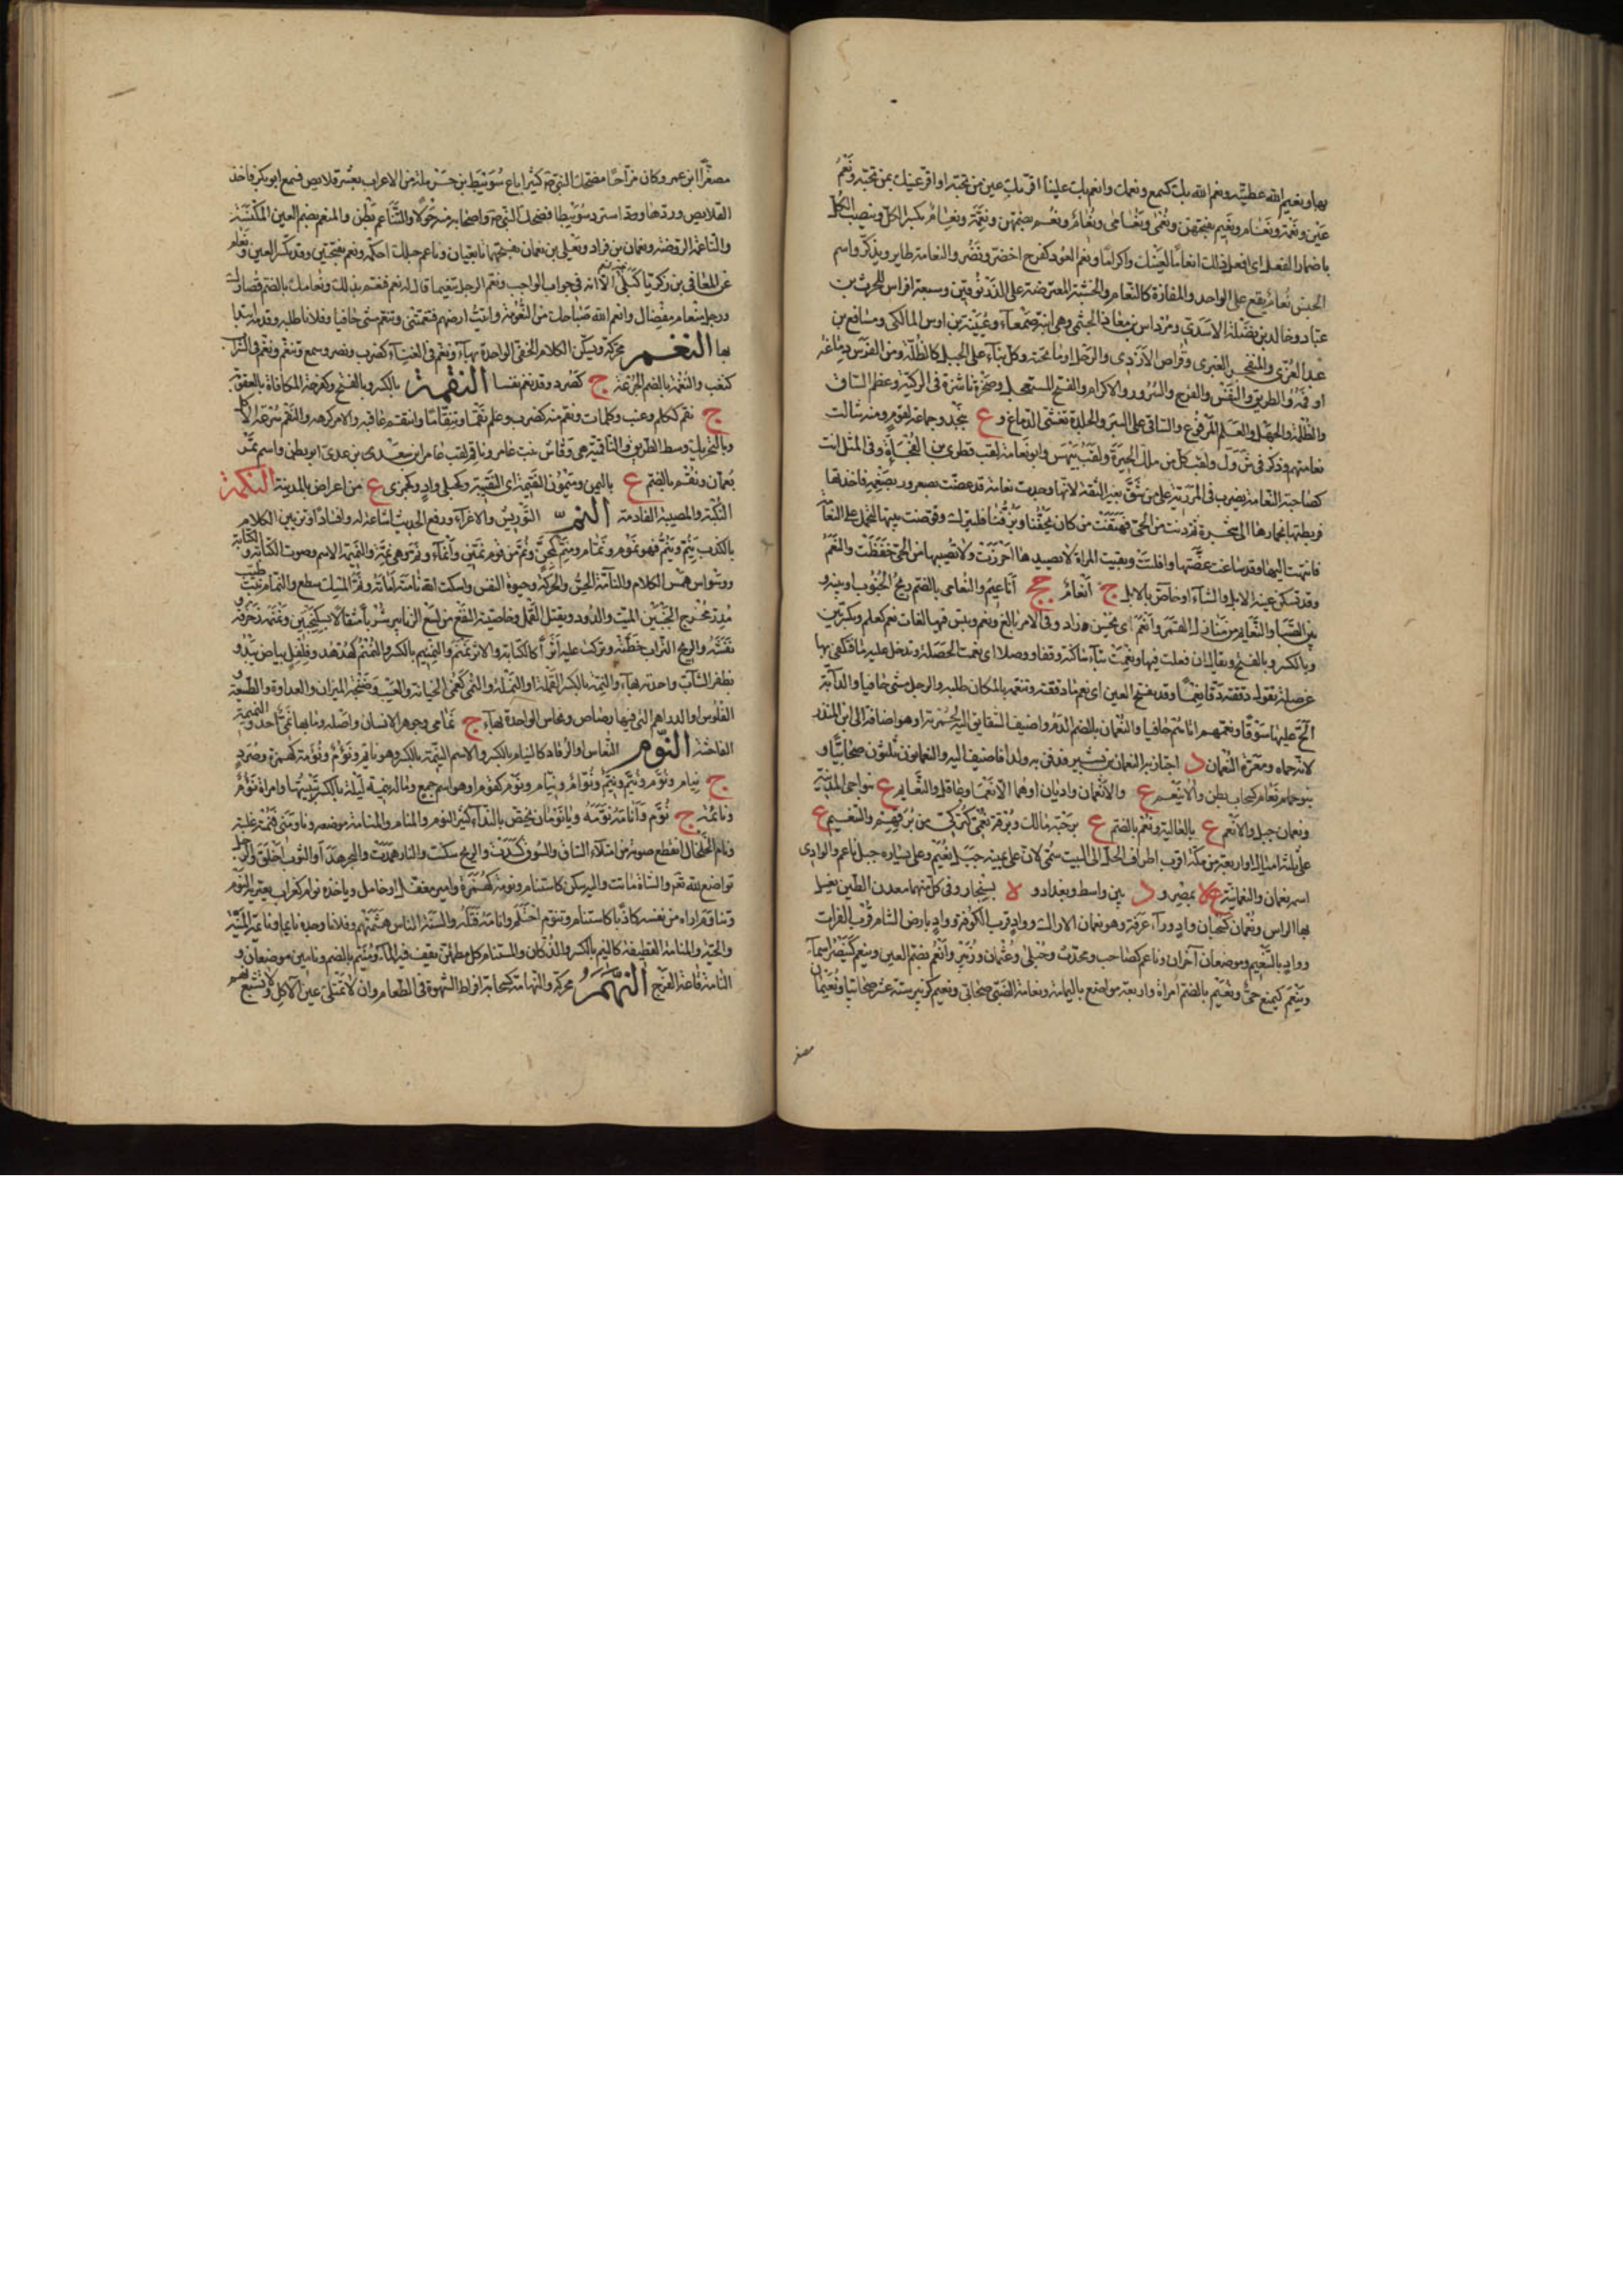 بها ونعيم الله عطيته ونعم الله بك كسمع ونعمك وانعم بك علينا اقر بك عين من تحبه او اقر عينك بمن تحبه ونعم
عين ونعمة ونعام ونعيم بفتحهن ونعمى ونعامى ونعام ونعم بضمهن ونعمة ونعام بكسرهما وينصب الكل
باضمار الفعل اى افعل ذلك انعاما لعينك واكراما ونعم العود كفرح اخضر ونضر والنعامة طاير ويذكر واسم
الجنس نعام ويقع على الواحد والمفازة كالنعام والخشبة المعترضة على الزرنوقين وسبعة افراس للحرث بن
عباد وخالد بن نضلة الاسدى ومرداس بن معاذ الجشمى وهى ابنة صمعاء وعيينة بن اوس المالكى ومسافع بن
عبد العزى والمنفجر الغبرى وقراص الازدى والرحل او ما تحته وكل بناء على الجبل كالظلة ومن الفرس دماغه
او فمه والطريق والنفس والفرح والسرور والاكرام والفيج المستعجل وصخرة ناشزة فى الركية وعظم الساق
والظلمة والجهل والعلم المرفوع والساقى على البئر والجلدة تغشى الدماغ و ع بنجد وجماعة القوم ومنه شالت
نعامتهم وذكر فى ش و ل ولقب كل من ملك الحيرة ولقب بيهس وابو نعامة لقب قطرى بن الفجاءة وفى المثل انت
كصاحبة النعامة يضرب فى المرزية على من يثق بغير الثقة لانها وجدت نعامة قد غصت بصعرور بصمغة فاخذتها
فربطتها بخمارها الى شجرة ثم دنت من الحى فهتفت من كان يحفنا ويرفنا فليترك وقوضت بيتها لتحمل على النعامة
فانتهت اليها وقد ساغت غصتها وافلتت وبقيت المراة لا صيدها احرزت ولا نصيبها من الحى حفظت والنعم
وقد تسكن عينه الابل والشاء او خاص بالابل ج انعام جج اناعيم والنعامى بالضم ريح الجنوب او بينه و
بين الصبا والنعايم من منازل القمر وانعم اى يحسن وزاد وفى الامر بالغ ونعم وبئس فيهما لغات نعم كعلم وبكسرتين
وبالكسر وبالفتح ويقال ان فعلت فيها ونعمت بتاء ساكنة وقفا ووصلا اى نعمت الخصلة وتدخل عليه ما فتكتفى بها
عن صلته تقول دققته دقا نعما وقد تفتح العين اى نعم ما دققته وتنعمه بالمكان طلبه والرجل مشى حافيا والدابة
الح عليها سوقا ونعمهم اتاهم حافيا والنعمان بالضم الدم واضيف الشقايق اليه لحمرته او هو اضافة الى ابن المنذر
لانه حماه ومعرة النعمان د اجتاز به النعمان بن بشير فدفن به ولدا فاضيف اليه والنعمانون ثلثون صحابيا و
بنو نعام كسحاب بطن والانيعم ع والانعمان واديان او هما الانعم وعاقل والنعايم ع بنواحى المدينة
ونعمان جبل والانعم ع بالعالية ونعم بالضم ع برحبة مالك وبرقة نعمى كتركى من برقهم والتنعيم ع
على ثلثة اميال او اربعة من مكة اقرب اطراف الحل الى البيت سمى لان على يمينه جبل نعيم وعلى يساره جبل ناعم والوادى
اسمه نعمان والنعمانية ع بمصر و د بين واسط وبغداد و لا بسنجار وفى كل منهما معدن الطين يغسل
بها الراس ونعمان كسحبان واد وراء عرفة وهو نعمان الاراك وواد قرب الكوفة وواد بارض الشام قرب الفرات
وواد بالتنعيم وموضعان آخران وناعم كصاحب ومحدث وحبلى وعثمان وزبير وانعم بضم العين وينعم كينصر اسماء
وينعم كيمنع حى ونعيم بالضم امراة واربعة مواضع باليمامة ونعامة الضبى صحابى ونعيم كزبير ستة عشر صحابيا ونعيمان
مصغرا
مصغرا ابن عمرو وكان مزاحا مضحك النبى ص كثيرا باع سويبط بن حرملة من الاعراب بعشر قلايص فسمع ابو بكر فاخذ
القلايص وردها واسترد سويبطا فضحك النبى ص واصحابه منه حولا والتناعم بطن والمنعم بضم العين المكنسة
والناعمة الروضة ونعمان بن قراد ويعلى بن نعمان بفتحهما تابعيان وناعم حبلك احكمه ونعم بفتحتين وقد تكسر العين ونعام
عن المعافى بن زكريا كبلى الا انه فى جواب الواجب ونعم الرجل تنعيما قال له نعم فنعم بذلك ونعامك بالضم قصارك
ورجل منعام مفضال وانعم الله صباحك من النعومة واتيت ارضهم فتنعمتنى وتنعم مشى حافيا وفلانا طلبه وقدمه ابتذلها
بها النغم محركة ويسكن الكلام الخفى الواحدة بهاء ونغم فى الغناء كضرب ونصر وسمع وتنغم ونغم فى الشراب
كنغب والنغمة بالضم الجرعة ج كصرد وقد نغم نفسا النقمة بالكسر وبالفتح وكفرحة المكافاة بالعقوبة
ج نقم ككلم وعنب وكلمات ونقم منه كضرب وعلم نقما وتنقاما وانتقم عاقبه والامر كرهه والنقم سرعة الاكل
وبالتحريك وسط الطريق والناقمية هى رقاش بنت عامر وناقم لقب عامر ابن سعد بن عدى ابى بطن واسم تمر
بعمان ونقم بالضم ع باليمن وميمون النقيمة اى النقيبة وكحبلى واد وكجمزى ع من اعراض المدينة النكمة
النكبة والمصيبة الفادحة النم التوريش والاغراء ورفع الحديث اشاعة له وافسادا وتزيين الكلام
بالكذب ينم وينم فهو نموم ونمام ومنم كمجن ونم من قوم نمين وانماء ونم وهى نمة والنميمة الاسم وصوت الكتابة و الكتابة
ووسواس همس الكلام والنامة الحس والحركة وحيوة النفس واسكت الله نامته اماته ونم المسك سطع والنمام نبت طيب
مدر مخرج الجنين الميت والدود ويقتل القمل وخاصيته النفع من لسع الزنابير شربا مثقالا بسكنجبين ونمنمه زخرفه و
نقشه والريح التراب خطته وتركت عليه اثرا كالكتابة والاثر نمنم والنمنيم بالكسر والنمنم كهدهد وفلفل بياض يبدو
بظفر الشاب واحدته بهاء والنمة بالكسر القملة او النملة والنمى كقمى الخيانة والعيب وصنجة الميزان والعداوة والطبيعة و
الفلوس او الدراهم التى فيها رصاص ونحاس الواحدة بهاء ج نمامى وجوهر الانسان واصله وما بها نمى احد و النميمة
الفاحشة النوم النعاس او الرقاد كالنيام بالكسر والاسم النيمة بالكسر وهو نايم ونؤم ونومة كهمزة وصرد
ج نيام ونوم ونيم ونيم ونوام ونيام ونوم كقوم او هو اسم جمع وما له نيمة ليلة بالكسر تبيتها وامراة نؤم
ونائمة ج نوم وانامه نومه ويا نومان يختص بالنداء كثير النوم والمنام والمنامة موضعه وناومنى فنمته غلبته
ونام الخلخال انقطع صوته من امتلاء الساق والسوق كسدت والريح سكنت والنار همدت والبحر هدا والثوب اخلق والرجل
تواضع لله تعم والشاة ماتت واليه سكن كاستنام ونومة كهمزة وامير مغفل او خامل وياخذه نوام كغراب يعتريه النوم
وتناوم اراه من نفسه كاذبا كاستنام وتنوم احتلم وانامه قتله والسنة الناس هشمتهم وفلانا وجده نايما والنايمة المنية
والحية والمنامة القطيفة كالنيم بالكسر والدكان والمستنام كل مطمئن يقف فيه الماء ومنيم بالضم ونامين موضعان و
النامة قاعة الفرج النهم محركة والنهامة كسحابة افراط الشهوة فى الطعام وان لا تمتلئ عين الاكل ولا تشبع نهم